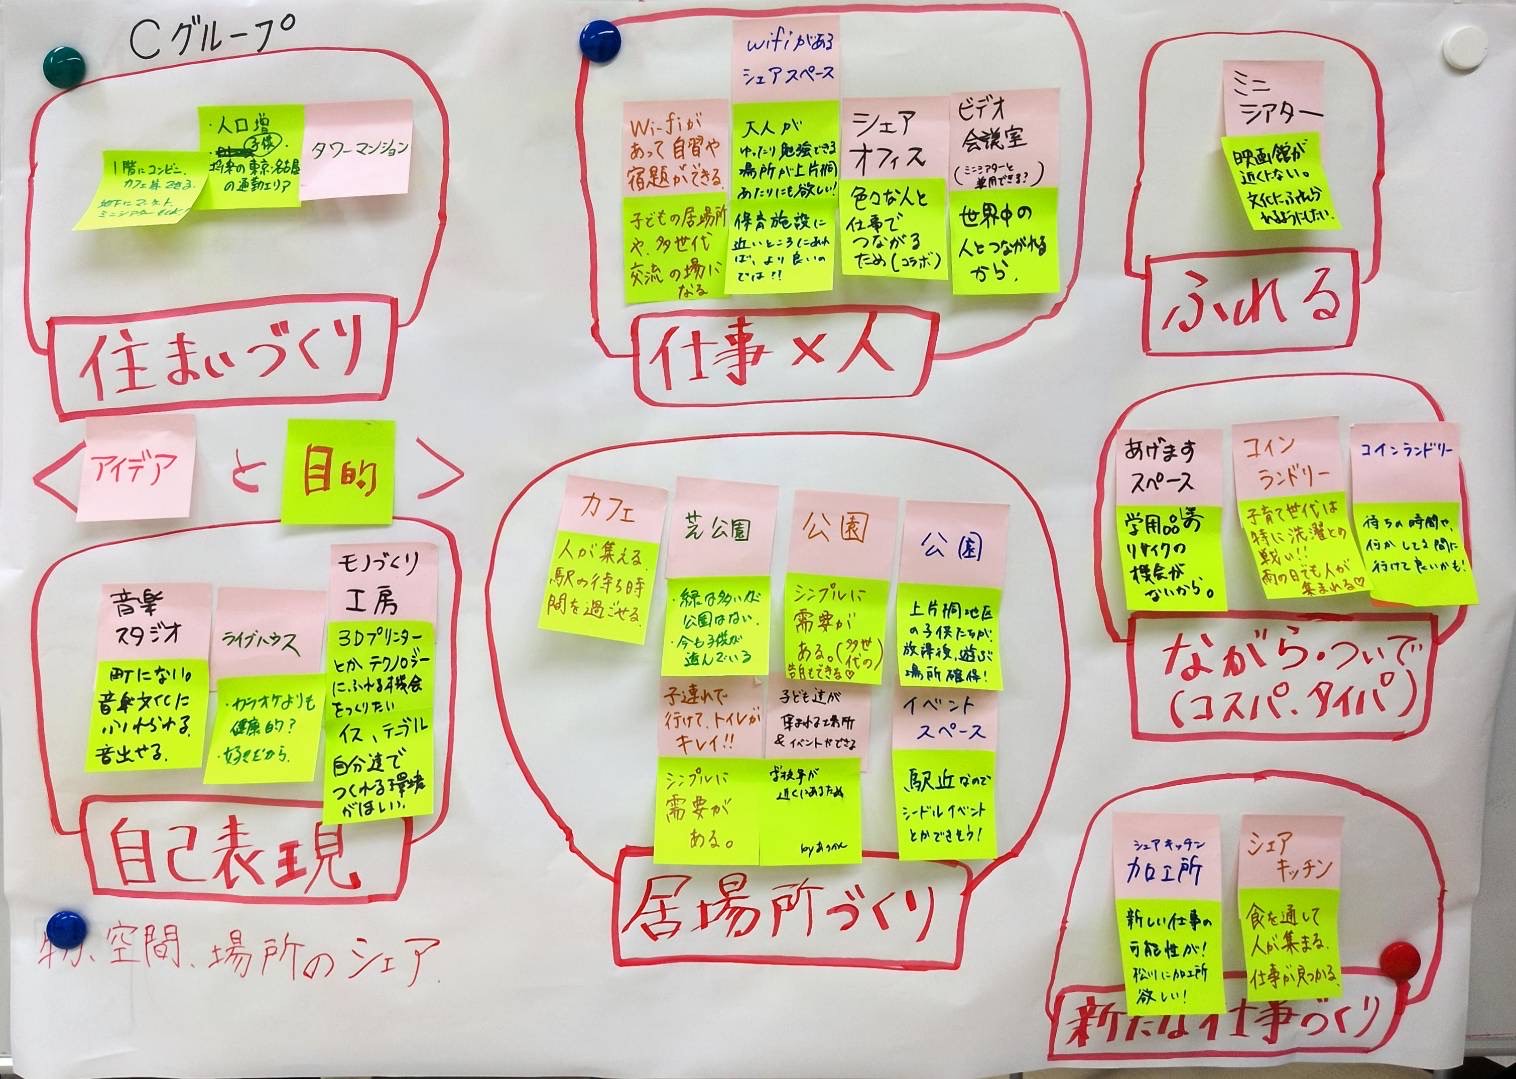 Cグループ
1階にコンビニ、
カフェ
地下にマーケット、
ミニシアター
・人口増
子供
将来の東京、名古屋
の通勤エリア
タワーマンション
住まいづくり
Wi-fiが
あって自習や
宿題ができる。
子どもの居場所
や、多世代
交流の場に
なる
wifiがある
シェアスペース
大人が
ゆったり勉強できる
場所が上片桐
あたりにも欲しい!
保育施設に
近いところにあれ
ば、より良いの
では?!
シェア
オフィス
色々な人と
仕事で
つながる
ため(コラボ)
ビデオ
会議室
(ミニシアターと
兼用できる?)
世界中の
人とつながれる
から。
仕事×人
ミニ
シアター
映画館が
近くにない。
文化にふれら
れるようにしたい。
ふれる
<アイデア と 目的>
音楽
スタジオ
町にない。
音楽文化に
ふれられる。
音出せる。
ライブハウス
・カラオケよりも
健康的?
・好きだから。
モノづくり
工房
3Dプリンター
とか、テクノロジー
にふれる機会
をつくりたい
イス、テーブル
自分達で
つくれる環境
がほしい。
自己表現
物、空間、場所のシェア
カフェ
人が集える。
駅の待ち時
間を過ごせる。
芝公園
・緑は多いが
公園はない。
・今も子供が
遊んでいる
公園
シンプルに
需要が
ある。(多世
代の)
公園
上片桐地区
の子供たちが
放課後、遊ぶ
場所確保!
子連れで
行けて、トイレが
キレイ!!
シンプルに
需要が
ある。
子ども達が
集まれる場所
&イベントができる
学校等が
近くにあるため
イベント
スペース
駅近なので
シードルイベント
とかできそう!
居場所づくり
あげます
スペース
学用品等の
リサイクの
機会が
ないから。
コイン
ランドリー
子育て世代は
特に洗濯との
戦い!!
雨の日でも人が
集まれる♡
コインランドリー
待ちの時間や、
何かしてる間に
行けて良いかも!
ながら・ついで
(コスパ、タイパ)
シェアキッチン
加工所
新しい仕事の
可能性が!
松川に加工所
欲しい!
シェア
キッチン
食を通して
人が集まる。
仕事が見つかる。
新たな仕事づくり